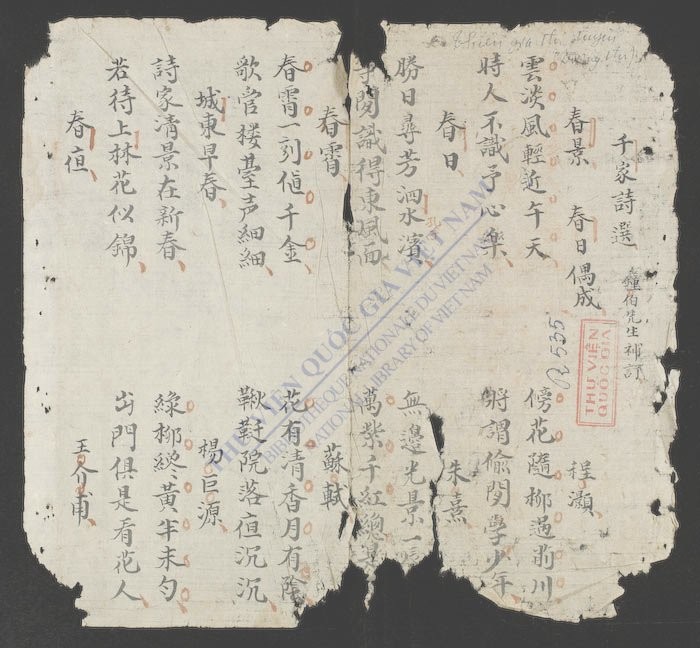 千家詩選 鐘伯先生補訂
春景 春日偶成 程灝
雲淡風輕近午天 傍花隨柳過前川
時人不識予心樂 將謂偷閒學少年
春日 朱熹
勝日尋芳泗水濱 無邊光景一
閒識得東風面 萬紫千紅總是
春宵 蘇軾
春霄一刻値千金 花有清香月有陰
歌管楼臺声細細 鞦韆院落夜沉沉
城東早春 楊巨源
詩家清景在新春 綠柳終黃半未勻
若待上林花似錦 出門俱是看花人
春夜 王介甫
R 535
THƯ VIỆN
QUỐC GIA
THƯ VIỆN QUỐC GIA VIỆT NAM
BIBLIOTHEQUE NATIONALE DU VIETNAM
NATIONAL LIBRARY OF VIETNAM